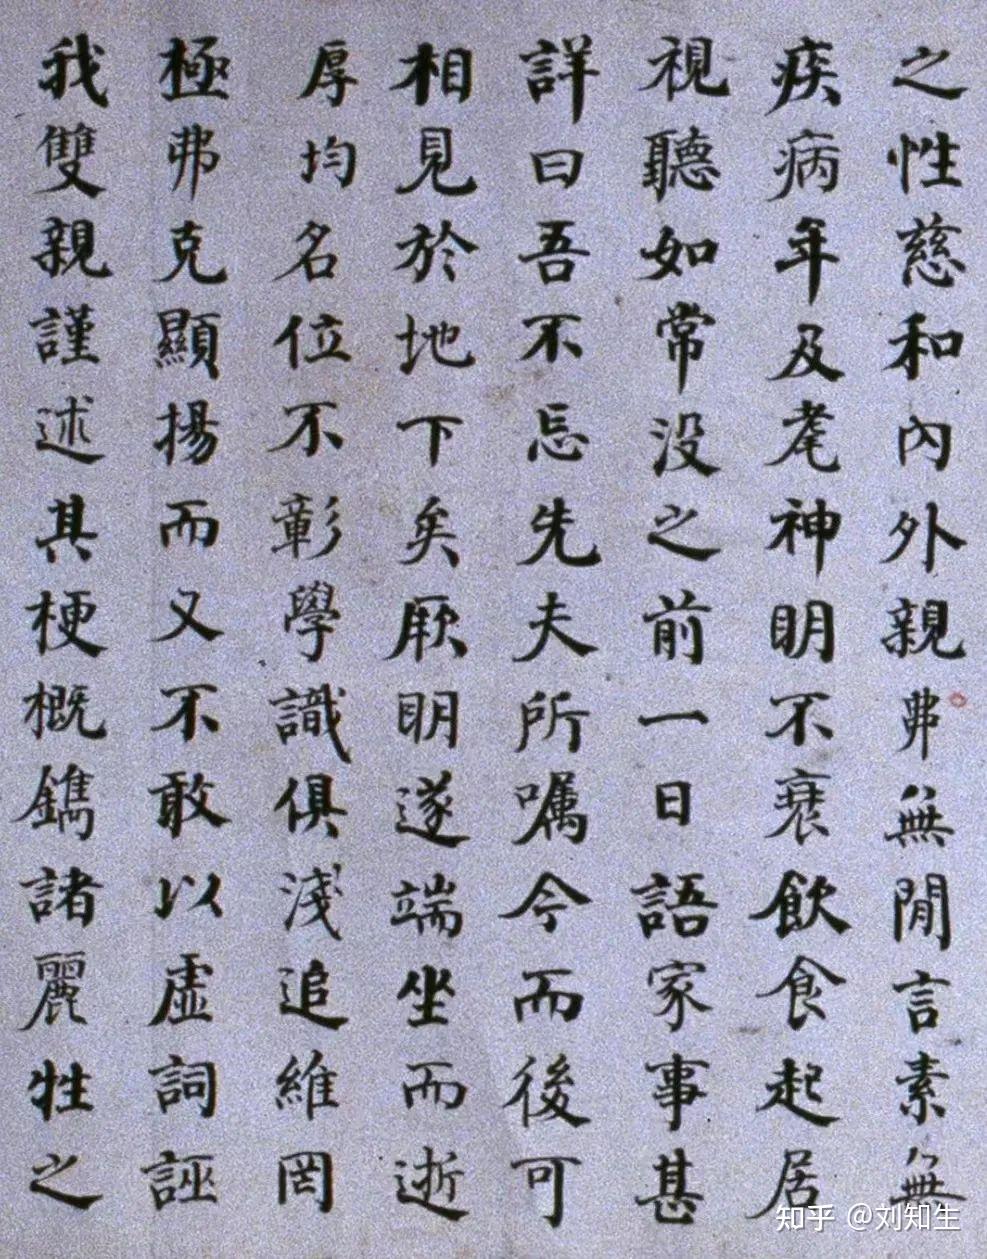 之性慈和內外親弗無閒言素無
疾病年及耄神明不衰飲食起居
視聽如常没之前一日語家事甚
詳曰吾不忘先夫所囑今而後可
相見於地下矣厥明遂端坐而逝
厚均名位不彰學識俱淺追維罔
極弗克顯揚而又不敢以虛詞誣
我雙親謹述其梗概鐫諸麗牲之
知乎 @刘知生